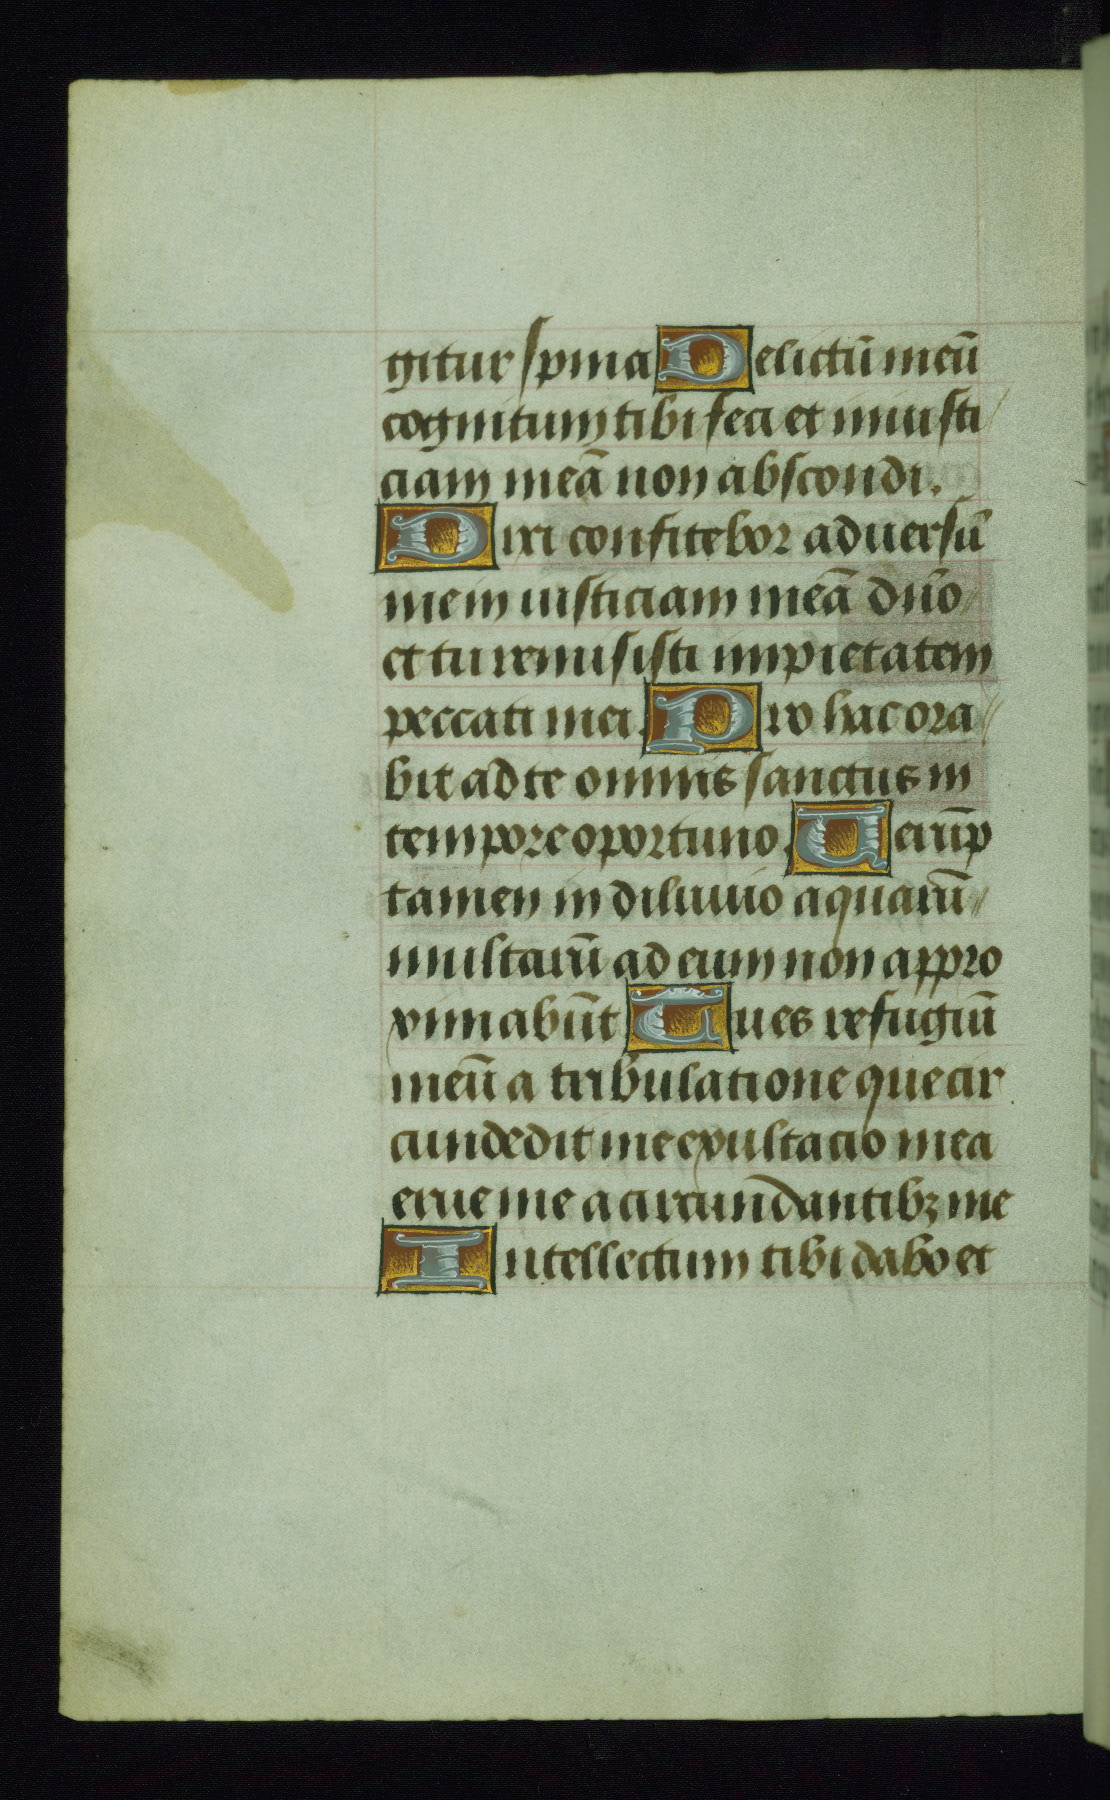 gitur spina Delictū meū
cognitum tibi feci et iniusti
ciam meā non abscondi.
Dixi confitebor aduersū
me iniusticiam meā dn̄o
et tu remisisti impietatem
peccati mei. Pro hac ora
bit ad te omnis sanctus in
tempore oportuno. Uerūp
tamen in diluuio aquarū
multarū ad eum non appro
ximabūt Tu es refugiū
meū a tribulatione que cir
cundedit me exultacio mea
erue me a circūndantibꝫ me
Intellectum tibi dabo et